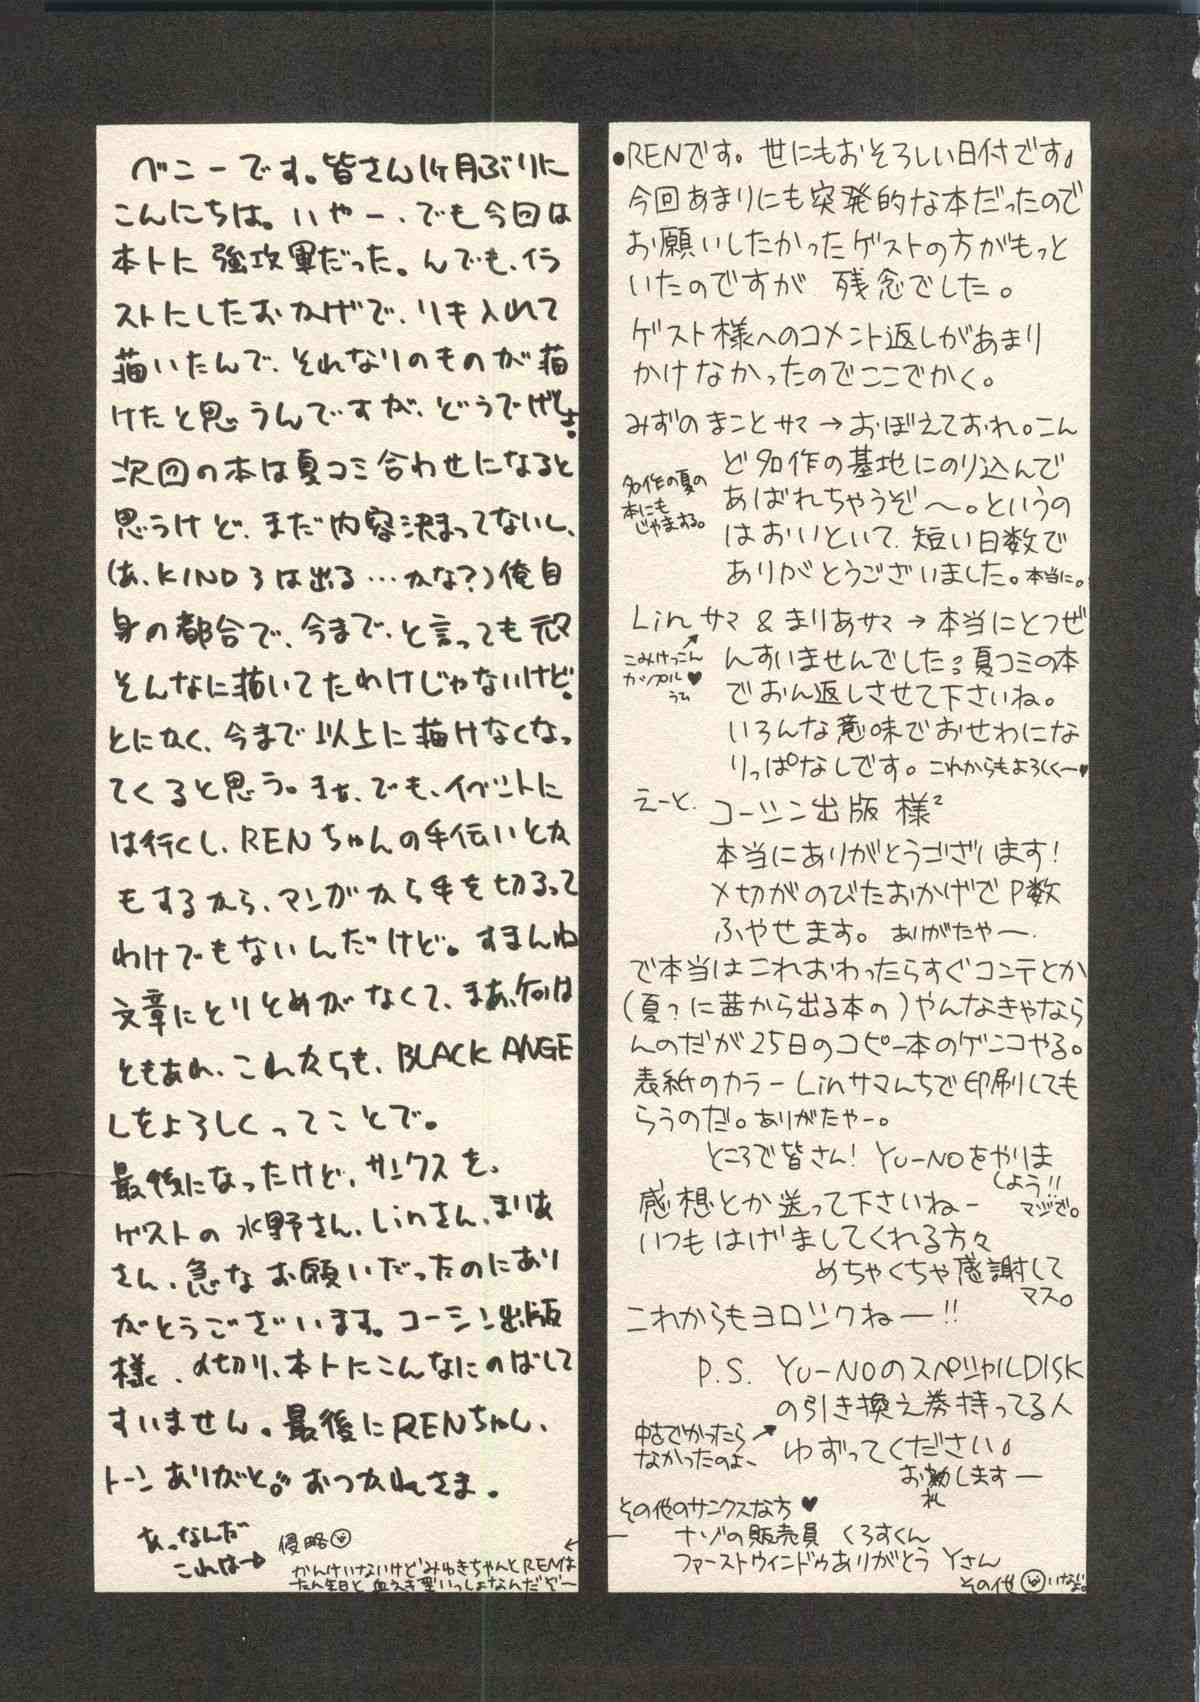 ●RENです。世にもおそろしい日付です♪
今回あまりにも突発的な本だったので
お願いしたかったゲストの方がもっと
いたのですが 残念でした。
ゲスト様へのコメント返しがあまり
かけなかったのでここでかく。
みずのまことサマ→おぼえておれ。こん
ど名作の基地にのり込んで
あばれちゃうぞ〜。というの
はおいといて、短い日数で
ありがとうございました。本当に。
名作の夏の
本にも
じゃまする。
Linサマ & まりあサマ→本当にとつぜ
んすいませんでした 夏コミの本
でおん返しさせて下さいね。
いろんな意味でおせわにな
りっぱなしです。これからもよろしくー♥
こみけっこん
カップル♥
うふ
えーと、コーシン出版 様²
本当にありがとうございます!
〆切がのびたおかげでP数
ふやせます。ありがたやー。
で本当はこれおわったらすぐコンテとか
(夏?に茜から出る本の)やんなきゃなら
んのだが25日のコピー本のゲンコやる。
表紙のカラーLinサマんちで印刷しても
らうのだ。ありがたやー。
ところで皆さん! YU-NOをやりま
しょう!!
マジで。
感想とか送って下さいねー
いつもはげましてくれる方々
めちゃくちゃ感謝して
マス。
これからもヨロシクねー!!
P.S. YU-NOのスペシャルDISK
の引き換え券持ってる人
ゆずってください♪
お礼しますー
中古でかったら
なかったのよ、
その他のサンクスな方♥
ナゾの販売員 くろすくん
ファーストウィンドゥありがとう Yさん
その他
ベニーです。皆さん1ヶ月ぶりに
こんにちは。いやー、でも今回は
本トに強攻軍だった。んでも、イラ
ストにしたおかげで、リキ入れて
描いたんで、それなりのものが描
けたと思うんですが、どうでげしょ。
次回の本は夏コミ合わせになると
思うけど、まだ内容決まってないし、
(あ、KIND3は出る…かな?)俺自
身の都合で、今まで、と言っても元々
そんなに描いてたわけじゃないけど。
とにかく、今まで以上に描けなくなっ
てくると思う。まぁ、でも、イベントに
は行くし、RENちゃんの手伝いとか
もするから、マンガから手を切るって
わけでもないんだけど。すまんね
文章にとりとめがなくて、まあ、何は
ともあれ、これからも、BLACK ANGE
Lをよろしくってことで。
最後になったけど、サンクスを、
ゲストの水野さん、Linさん、まりあ
さん、急なお願いだったのにあり
がとうございます。コーシン出版
様、〆切り、本トにこんなにのばして
すいません。最後にRENちゃん、
トーンありがと。おつかれさま。
あっなんだ
これは→ 侵略
かんけいないけどみゆきちゃんとRENは
たん生日と血えき型いっしょなんだぞー